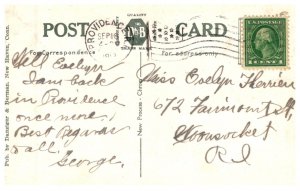 POST CARD
PROVIDENCE
SEP
D&B
TRADE MARK
For Correspondence
For address only.
Pub. by Danziger & Berman, New Haven, Conn.
New Process
Well Evelyn
I am back
in Providence
once more.
Best Regards
to all.
George.
Miss Evelyn Therrien
672 Fairmount St.
Woonsocket
R I